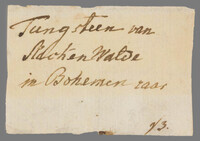 Tungsteen van
Slacken Walde
in Bohemen raar